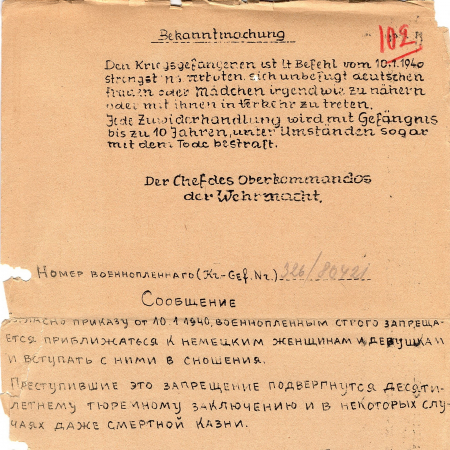 Bekanntmachung
102
Den Kriegsgefangenen ist lt Befehl vom 10.1.1940
strengstens verboten, sich unbefugt deutschen
Frauen oder Mädchen irgendwie zu nähern
oder mit ihnen in Verkehr zu treten.
Jede Zuwiderhandlung wird mit Gefängnis
bis zu 10 Jahren, unter Umständen sogar
mit dem Tode bestraft.
Der Chef des Oberkommandos
der Wehrmacht.
Номер военнопленнаго (Kr.-Gef. Nr.) 326/80421
Сообщение
огласно приказу от 10.1.1940, военнопленным строго запреща-
ется приближаться к немецким женщинам и девушкам
и вступать с ними в сношения.
Преступившие это запрещение подвергнутся десяти-
летнему тюремному заключению и в некоторых слу-
чаях даже смертной казни.